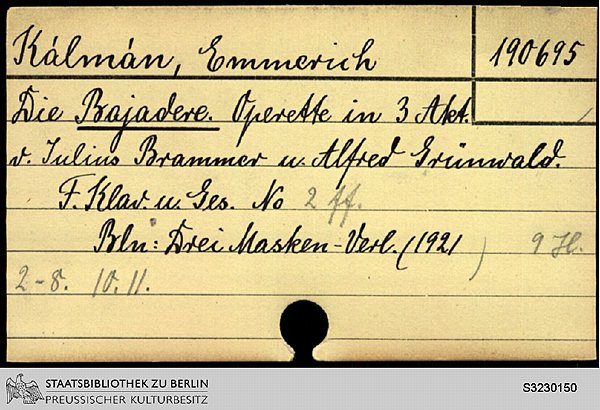 Kálmán, Emmerich
190695
Die Bajadere. Operette in 3 Akt.
v. Julius Brammer u. Alfred Grünwald.
F. Klav. u. Ges. No 2 ff.
Bln: Drei Masken-Verl. (1921 ) 9 H.
2-8. 10. 11.
STAATSBIBLIOTHEK ZU BERLIN
PREUSSISCHER KULTURBESITZ
S3230150